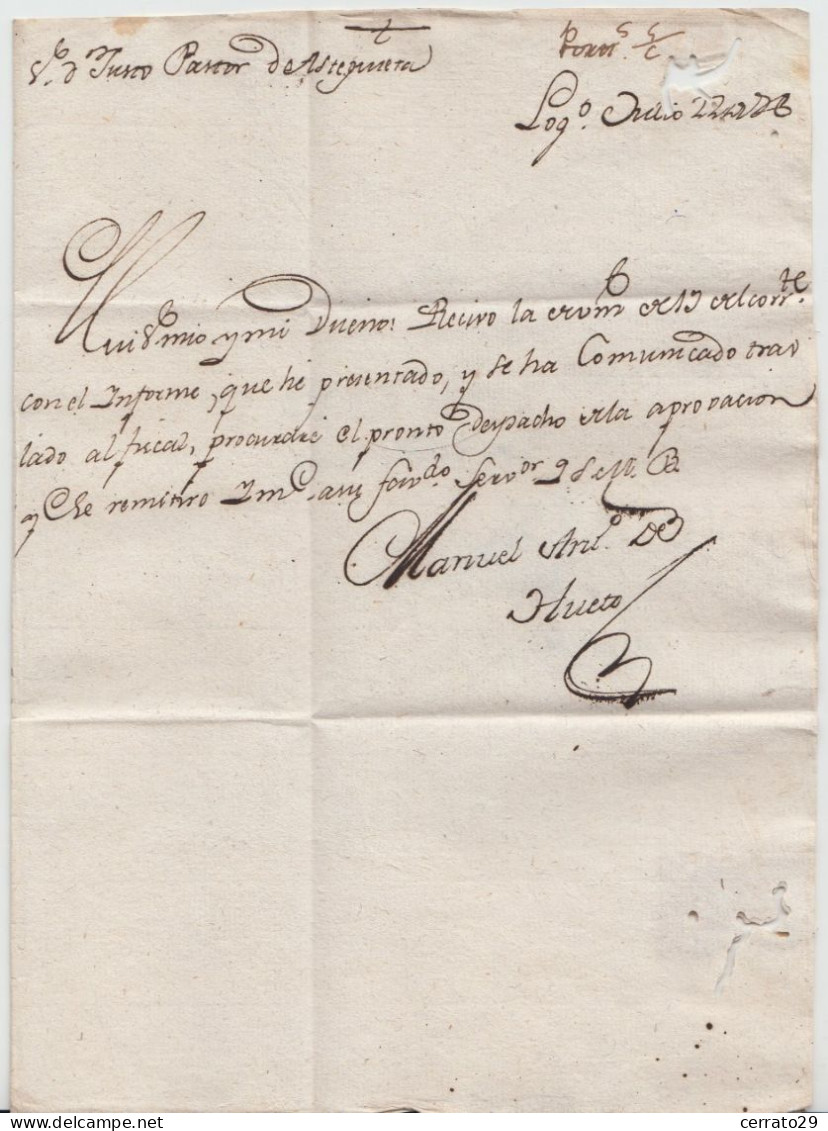 Sr. Dn Justo Pastor de Asteguieta
Log.o Julio 22 de
Mui Sr. mio y mi Dueno: Recivo la de vm de 17 del corr.te
con el Informe, que he presentado, y se ha Comunicado tras
lado al fiscal, procurare el pronto despacho de la aprovacion
y the remitiro Serv.or q S. M. B.
Manuel Ant.o de
Hueto
cerrato29